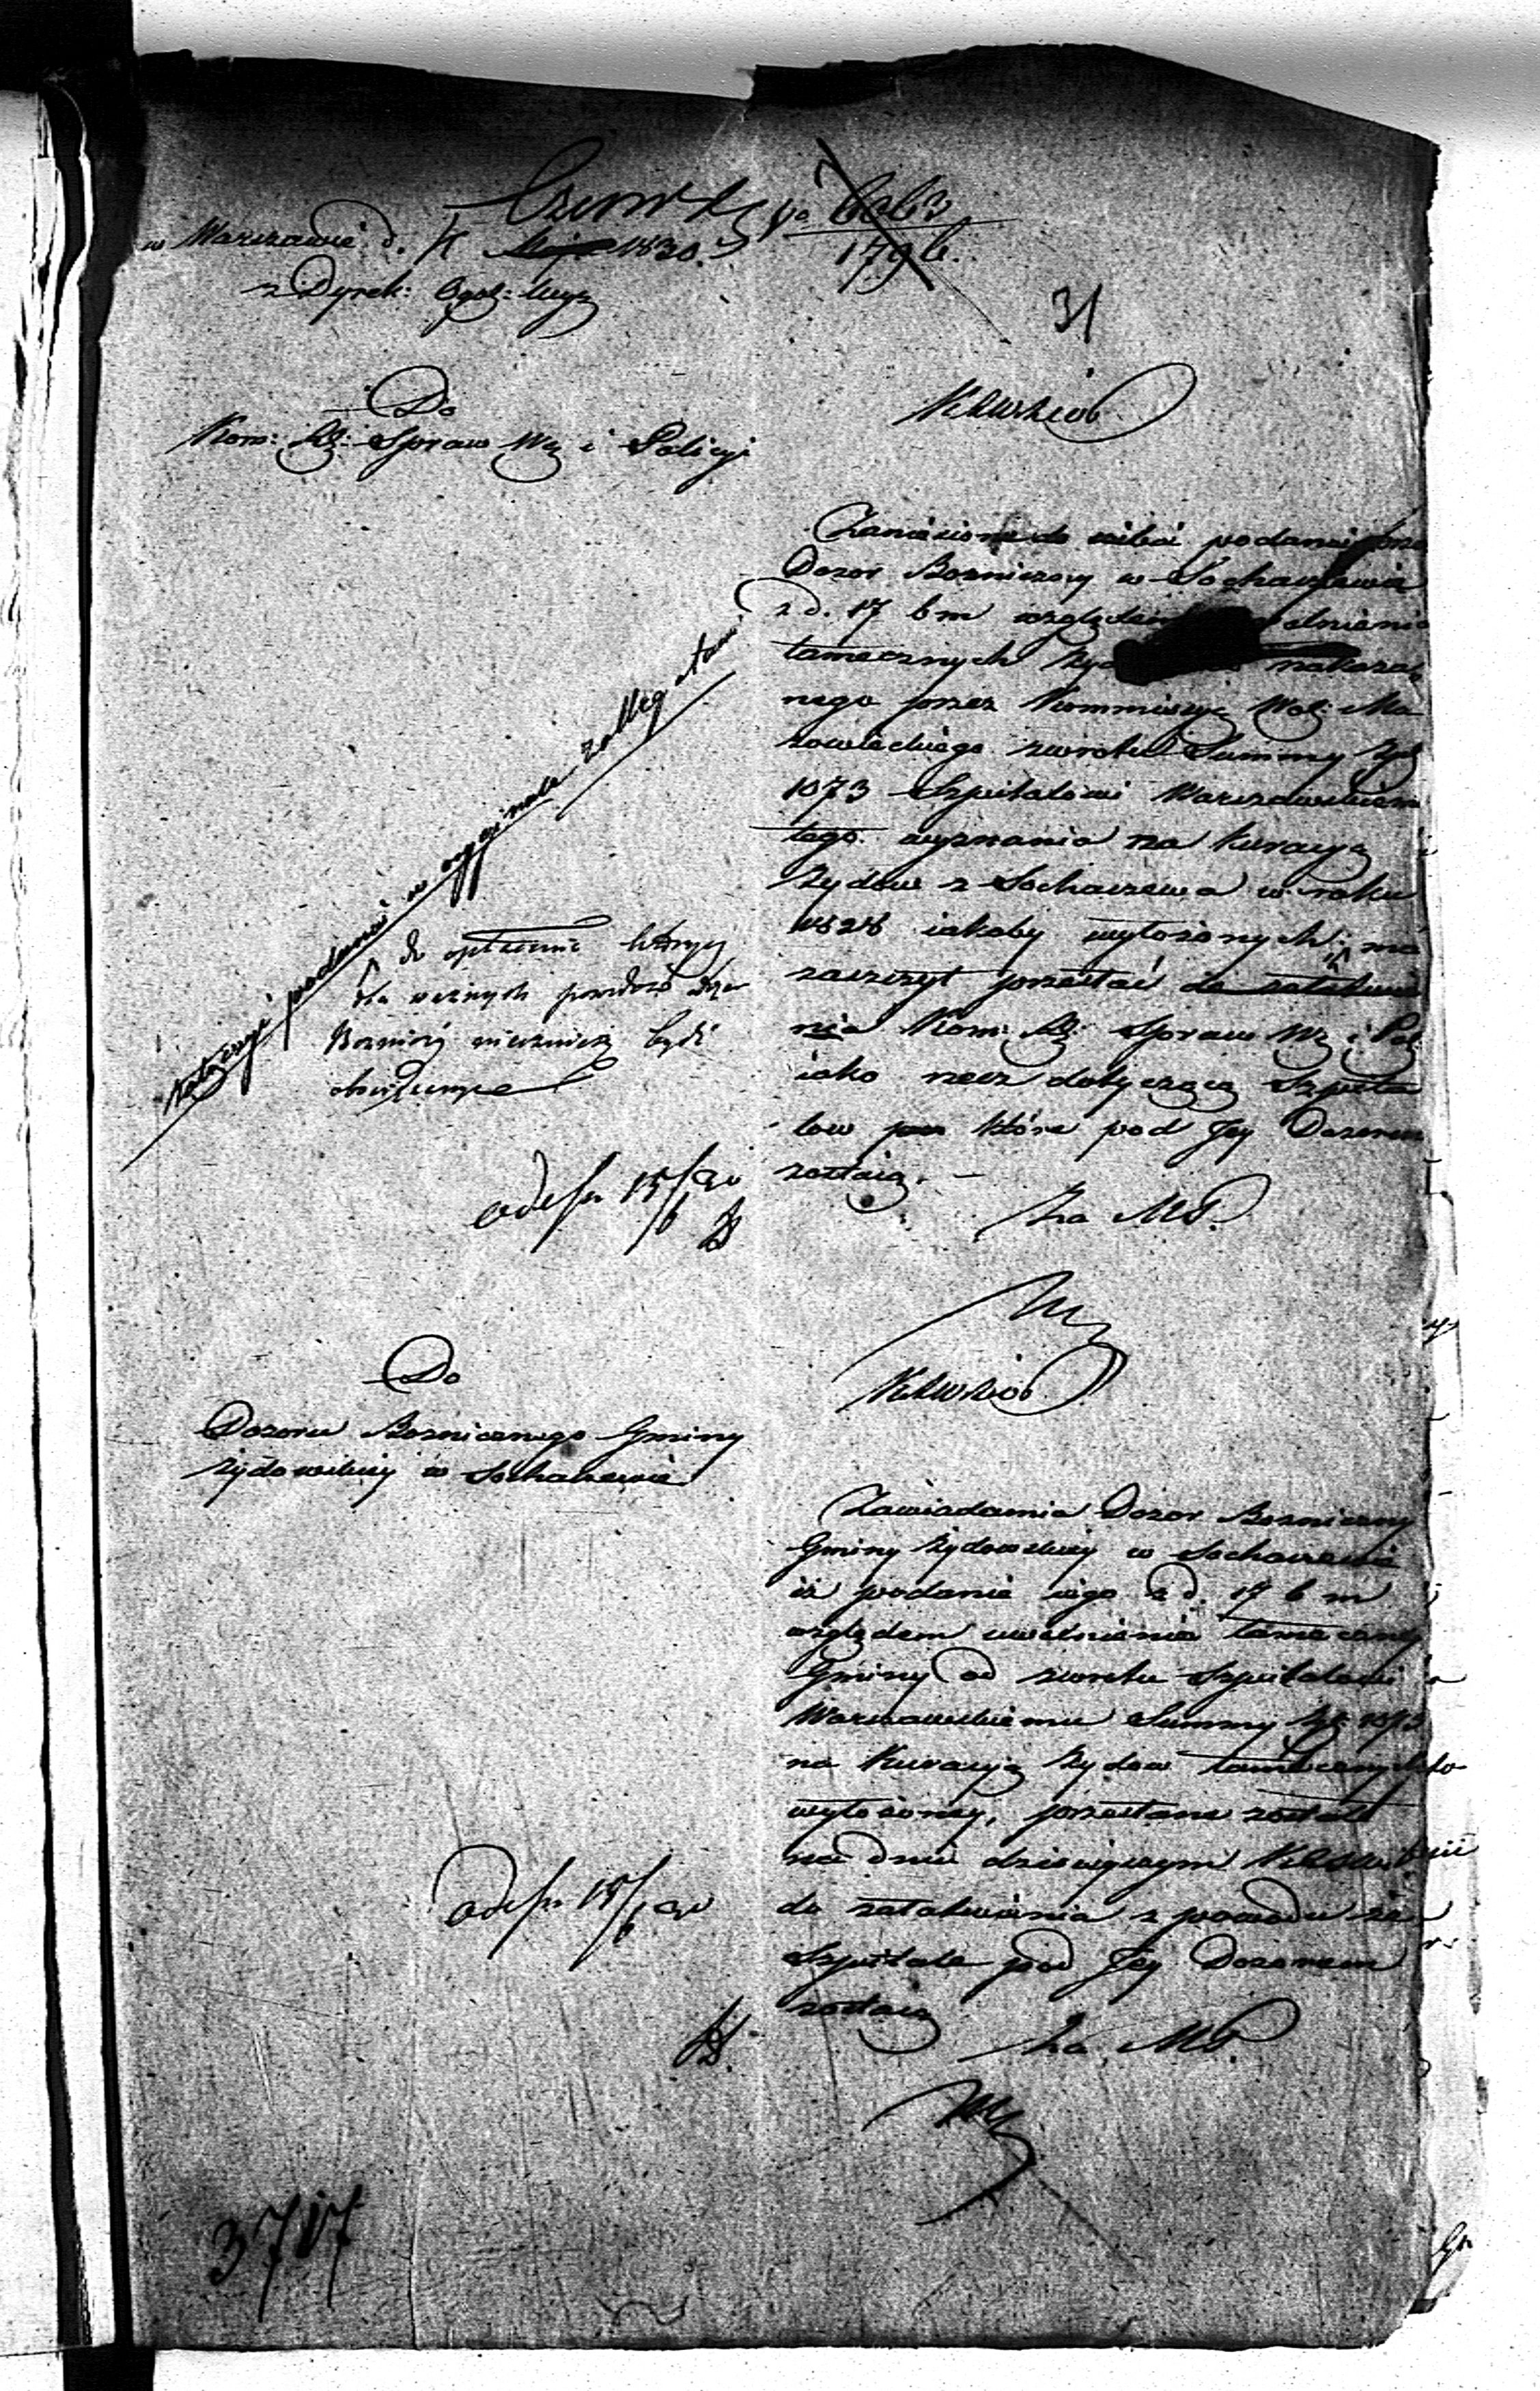 Czerwca
w Warszawie d. 4 Maja 1830.
No 6063
1796.
z Dyrek: Ogól:
31
Do
Kom: Rz: Spraw We i Policyi
KRWRiOP
Zaniesione do siebie podanie przez
Dozor Bozniczny w Sochaczewie
z d. 17 b m względem uwolnienia
tamecznych Żydów nakaza
nego przez Kommissyę Woj: Ma
zowieckiego zwrotu Summy Złp
1073 Szpitalowi Warszawskiem
tego wyznania na kuracyą
Żydów z Sochaczewa w roku
1828 jakoby wyłożonych, ma
zaszczyt przesłać do załatwie
nia Kom: Rz: Spraw We i Pol
iako rzecz dotyczącą Szpita
low które pod Jey Dozorem
zostaią. –
Załączyć podanie w orginale z allegatami
do opłacenia których
dla ważnych powodów
Bozniczy mieni być
obowiązanym
odesł 15/6 30
Za MP.
Do
Dozoru Boznicznego Gminy
Żydowskiey w Sochaczewie
KRWRiOP
Zawiadamia Dozor Bozniczny
Gminy Żydowskiey w Sochaczewie
iż podanie iego z d. 17 b m
względem uwolnienia tameczney
Gminy od zwrotu Szpitalowi
Warszawskiemu Summy Złp 1073
na Kuracyą Żydow tamecznych
wyłożoney, przesłane zostało
na dniu dzisieyszym
do załatwienia z powodu że
Szpitale pod Jey Dozorem
zostaią
odesł 15/6 30
Za MP.
3717